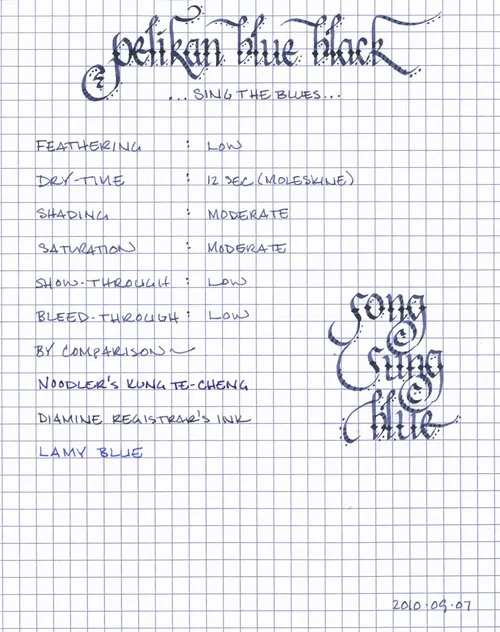 pelikan blue black
... SING THE BLUES...
FEATHERING : LOW
DRY-TIME : 12 SEC (MOLESKINE)
SHADING : MODERATE
SATURATION : MODERATE
SHOW-THROUGH : LOW
BLEED-THROUGH : LOW
BY COMPARISON~
NOODLER'S KUNG TE-CHENG
DIAMINE REGISTRAR'S INK
LAMY BLUE
song
sung
blue
2010.09.07